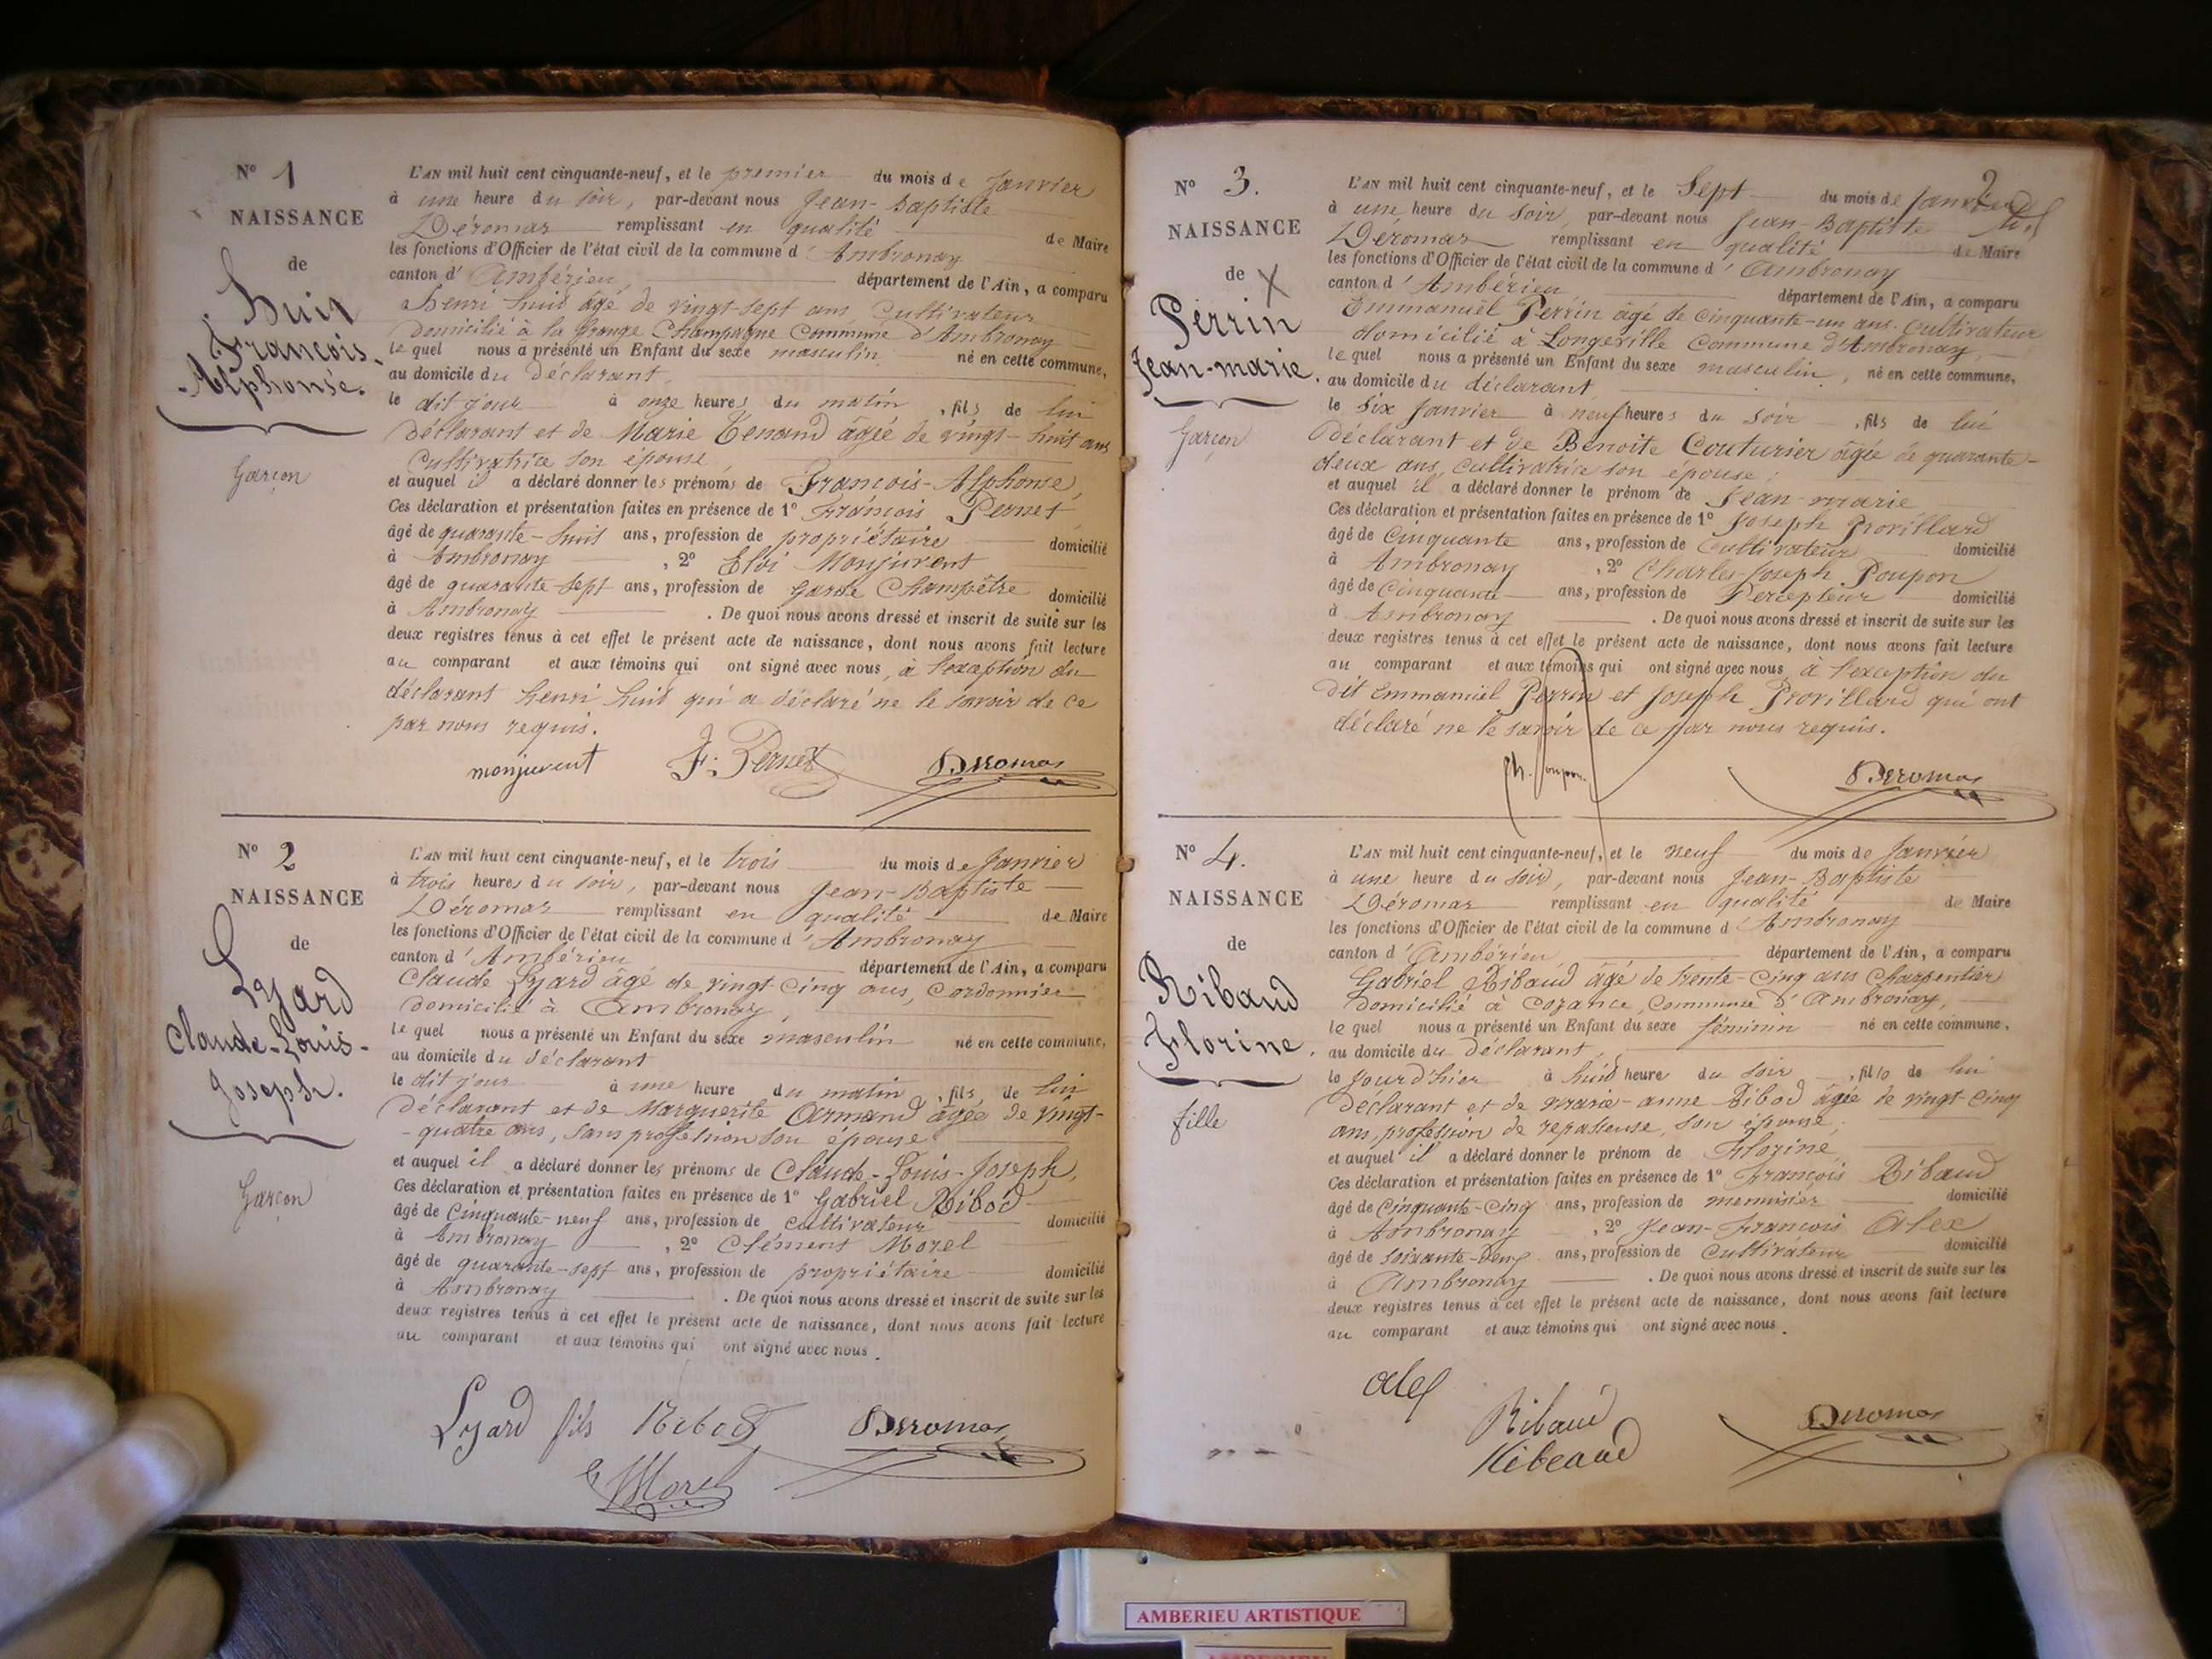 N° 1
NAISSANCE
de
huit
François-
Alphonse.
Garçon
L'AN mil huit cent cinquante-neuf, et le premier du mois de Janvier
à une heure du soir, par-devant nous Jean-Baptiste
Déromas remplissant en qualité de Maire
les fonctions d'Officier de l'état civil de la commune d'Ambronay
canton d'Ambérieu, département de l'Ain, a comparu
henri huit âgé de vingt-sept ans, Cultivateur
Domicilié à la Grange Champagne Commune d'Ambronay
lequel nous a présenté un Enfant du sexe masculin né en cette commune,
au domicile du Déclarant,
le dit jour à onze heures du matin, fils de lui
Déclarant et de Marie Tenand âgée de vingt-huit ans
Cultivatrice son épouse
et auquel il a déclaré donner les prénoms de François-Alphonse,
Ces déclaration et présentation faites en présence de 1° François Pernet
âgé de quarante-huit ans, profession de propriétaire domicilié
à Ambronay, 2° Eloi Monjuvent
âgé de quarante sept ans, profession de Garde Champêtre domicilié
à Ambronay. De quoi nous avons dressé et inscrit de suite sur les
deux registres tenus à cet effet le présent acte de naissance, dont nous avons fait lecture
au comparant et aux témoins qui ont signé avec nous, à l'exception du
déclarant henri huit qui a déclaré ne le savoir de ce
par nous requis.
monjuvent F. Pernet Déromas
N° 2
NAISSANCE
de
Lyard
Claude-Louis-
Joseph.
Garçon
L'AN mil huit cent cinquante-neuf, et le trois du mois de Janvier
à trois heures du soir, par-devant nous Jean-Baptiste
Déromas remplissant en qualité de Maire
les fonctions d'Officier de l'état civil de la commune d'Ambronay
canton d'Ambérieu département de l'Ain, a comparu
Claude Lyard âgé de vingt-cinq ans, Cordonnier
domicilié à Ambronay,
lequel nous a présenté un Enfant du sexe masculin né en cette commune,
au domicile du déclarant
le dit jour à une heure du matin, fils de lui
Déclarant et de Marguerite Armand âgée de vingt-
-quatre ans, sans profession son épouse
et auquel il a déclaré donner les prénoms de Claude-Louis-Joseph,
Ces déclaration et présentation faites en présence de 1° Gabriel Ribod
âgé de Cinquante-neuf ans, profession de cultivateur domicilié
à Ambronay, 2° Clément Morel
âgé de quarante-sept ans, profession de propriétaire domicilié
à Ambronay. De quoi nous avons dressé et inscrit de suite sur les
deux registres tenus à cet effet le présent acte de naissance, dont nous avons fait lecture
au comparant et aux témoins qui ont signé avec nous.
Lyard fils Ribod Déromas
Morel
2
N° 3.
NAISSANCE
de X
Perrin
Jean-marie.
Garçon
L'AN mil huit cent cinquante-neuf, et le Sept du mois de Janvier
à une heure du soir, par-devant nous Jean-Baptiste
Déromas remplissant en qualité de Maire
les fonctions d'Officier de l'état civil de la commune d'Ambronay
canton d'Ambérieu département de l'Ain, a comparu
Emmanuel Perrin âgé de Cinquante-un ans. Cultivateur
domicilié à Longeville Commune d'Ambronay,
lequel nous a présenté un Enfant du sexe masculin, né en cette commune,
au domicile du déclarant
le six Janvier à neuf heures du soir, fils de lui
Déclarant et de Benoite Couturier âgée de quarante-
deux ans, Cultivatrice son épouse;
et auquel il a déclaré donner le prénom de Jean-marie
Ces déclaration et présentation faites en présence de 1° Joseph Provillard
âgé de Cinquante ans, profession de Cultivateur domicilié
à Ambronay, 2° Charles-Joseph Poupon
âgé de Cinquante ans, profession de Percepteur domicilié
à Ambronay. De quoi nous avons dressé et inscrit de suite sur les
deux registres tenus à cet effet le présent acte de naissance, dont nous avons fait lecture
au comparant et aux témoins qui ont signé avec nous, à l'exception du
dit Emmanuel Perrin et Joseph Provillard qui ont
déclaré ne le savoir de ce par nous requis.
Ch. Poupon Déromas
N° 4.
NAISSANCE
de
Ribaud
Florine.
fille
L'AN mil huit cent cinquante-neuf, et le neuf du mois de Janvier
à une heure du soir, par-devant nous Jean-Baptiste
Déromas remplissant en qualité de Maire
les fonctions d'Officier de l'état civil de la commune d'Ambronay
canton d'Ambérieu département de l'Ain, a comparu
Gabriel Ribaud âgé de trente-cinq ans Charpentier
Domicilié à Cozance, Commune d'Ambronay,
lequel nous a présenté un Enfant du sexe féminin né en cette commune,
au domicile du Déclarant,
le Jour d'hier à huit heure du soir, fille de lui
Déclarant et de marie-anne Ribod âgée de vingt-cinq
ans, profession de repasseuse, son épouse;
et auquel il a déclaré donner le prénom de Florine
Ces déclaration et présentation faites en présence de 1° François Ribaud
âgé de Cinquante-cinq ans, profession de menuisier domicilié
à Ambronay, 2° Jean-François Alex
âgé de soixante-neuf ans, profession de Cultivateur domicilié
à Ambronay. De quoi nous avons dressé et inscrit de suite sur les
deux registres tenus à cet effet le présent acte de naissance, dont nous avons fait lecture
au comparant et aux témoins qui ont signé avec nous.
alex
Ribaud Déromas
Ribeaud
AMBERIEU ARTISTIQUE
AMBERIEU